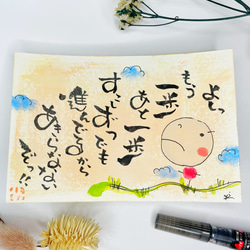 よしっ
もう
一歩
あと一歩
すこしずつでも
進んでるから
あきらめない
ぞっ!!